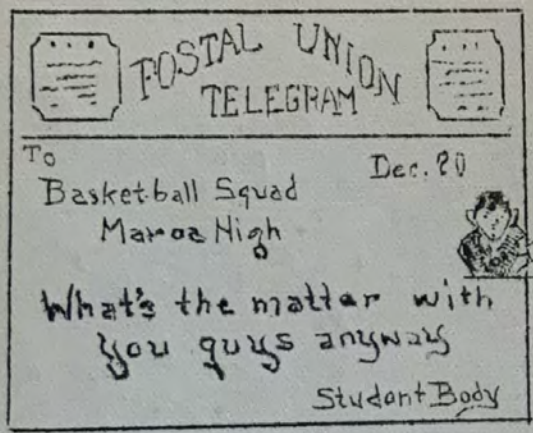 POSTAL UNION
TELEGRAM
To
Dec. 20
Basketball Squad
Maroa High
What's the matter with
you guys anyway
Student Body